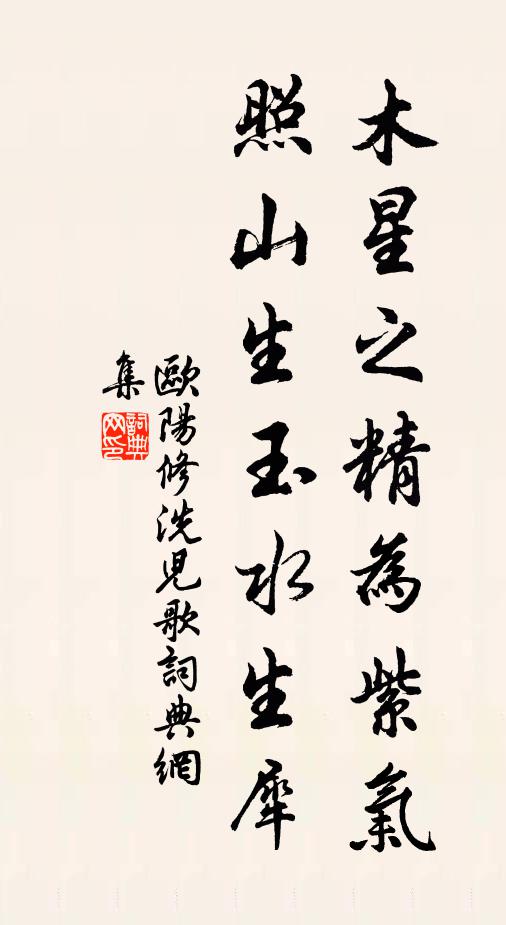 木星之精為紫氣
照山生玉水生犀
歐陽修洗兒歌詞典網
集
詞典网印